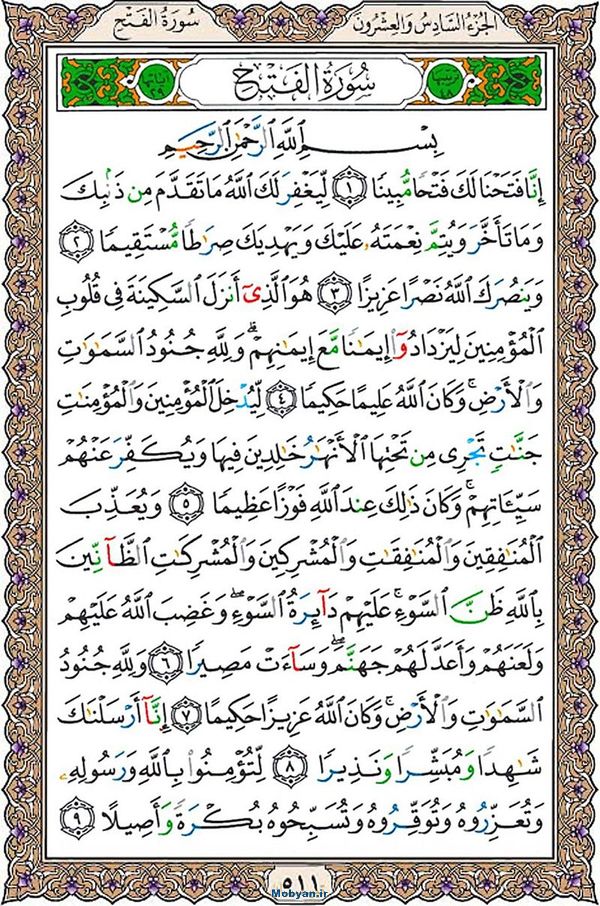 الجزء السادس والعشرون
سورة الفتح
سورة الفتح
بِسْمِ ٱللَّهِ ٱلرَّحْمَٰنِ ٱلرَّحِيمِ
إِنَّا فَتَحْنَا لَكَ فَتْحًا مُّبِينًا ١ لِّيَغْفِرَ لَكَ ٱللَّهُ مَا تَقَدَّمَ مِن ذَنۢبِكَ
وَمَا تَأَخَّرَ وَيُتِمَّ نِعْمَتَهُۥ عَلَيْكَ وَيَهْدِيَكَ صِرَٰطًا مُّسْتَقِيمًا ٢
وَيَنصُرَكَ ٱللَّهُ نَصْرًا عَزِيزًا ٣ هُوَ ٱلَّذِىٓ أَنزَلَ ٱلسَّكِينَةَ فِى قُلُوبِ
ٱلْمُؤْمِنِينَ لِيَزْدَادُوٓا۟ إِيمَٰنًا مَّعَ إِيمَٰنِهِمْ ۗ وَلِلَّهِ جُنُودُ ٱلسَّمَٰوَٰتِ
وَٱلْأَرْضِ ۚ وَكَانَ ٱللَّهُ عَلِيمًا حَكِيمًا ٤ لِّيُدْخِلَ ٱلْمُؤْمِنِينَ وَٱلْمُؤْمِنَٰتِ
جَنَّٰتٍ تَجْرِى مِن تَحْتِهَا ٱلْأَنْهَٰرُ خَٰلِدِينَ فِيهَا وَيُكَفِّرَ عَنْهُمْ
سَيِّـَٔاتِهِمْ ۚ وَكَانَ ذَٰلِكَ عِندَ ٱللَّهِ فَوْزًا عَظِيمًا ٥ وَيُعَذِّبَ
ٱلْمُنَٰفِقِينَ وَٱلْمُنَٰفِقَٰتِ وَٱلْمُشْرِكِينَ وَٱلْمُشْرِكَٰتِ ٱلظَّآنِّينَ
بِٱللَّهِ ظَنَّ ٱلسَّوْءِ ۚ عَلَيْهِمْ دَآئِرَةُ ٱلسَّوْءِ ۖ وَغَضِبَ ٱللَّهُ عَلَيْهِمْ
وَلَعَنَهُمْ وَأَعَدَّ لَهُمْ جَهَنَّمَ ۖ وَسَآءَتْ مَصِيرًا ٦ وَلِلَّهِ جُنُودُ
ٱلسَّمَٰوَٰتِ وَٱلْأَرْضِ ۚ وَكَانَ ٱللَّهُ عَزِيزًا حَكِيمًا ٧ إِنَّآ أَرْسَلْنَٰكَ
شَٰهِدًا وَمُبَشِّرًا وَنَذِيرًا ٨ لِّتُؤْمِنُوا۟ بِٱللَّهِ وَرَسُولِهِۦ
وَتُعَزِّرُوهُ وَتُوَقِّرُوهُ وَتُسَبِّحُوهُ بُكْرَةً وَأَصِيلًا ٩
٥١١
Mobyan.ir